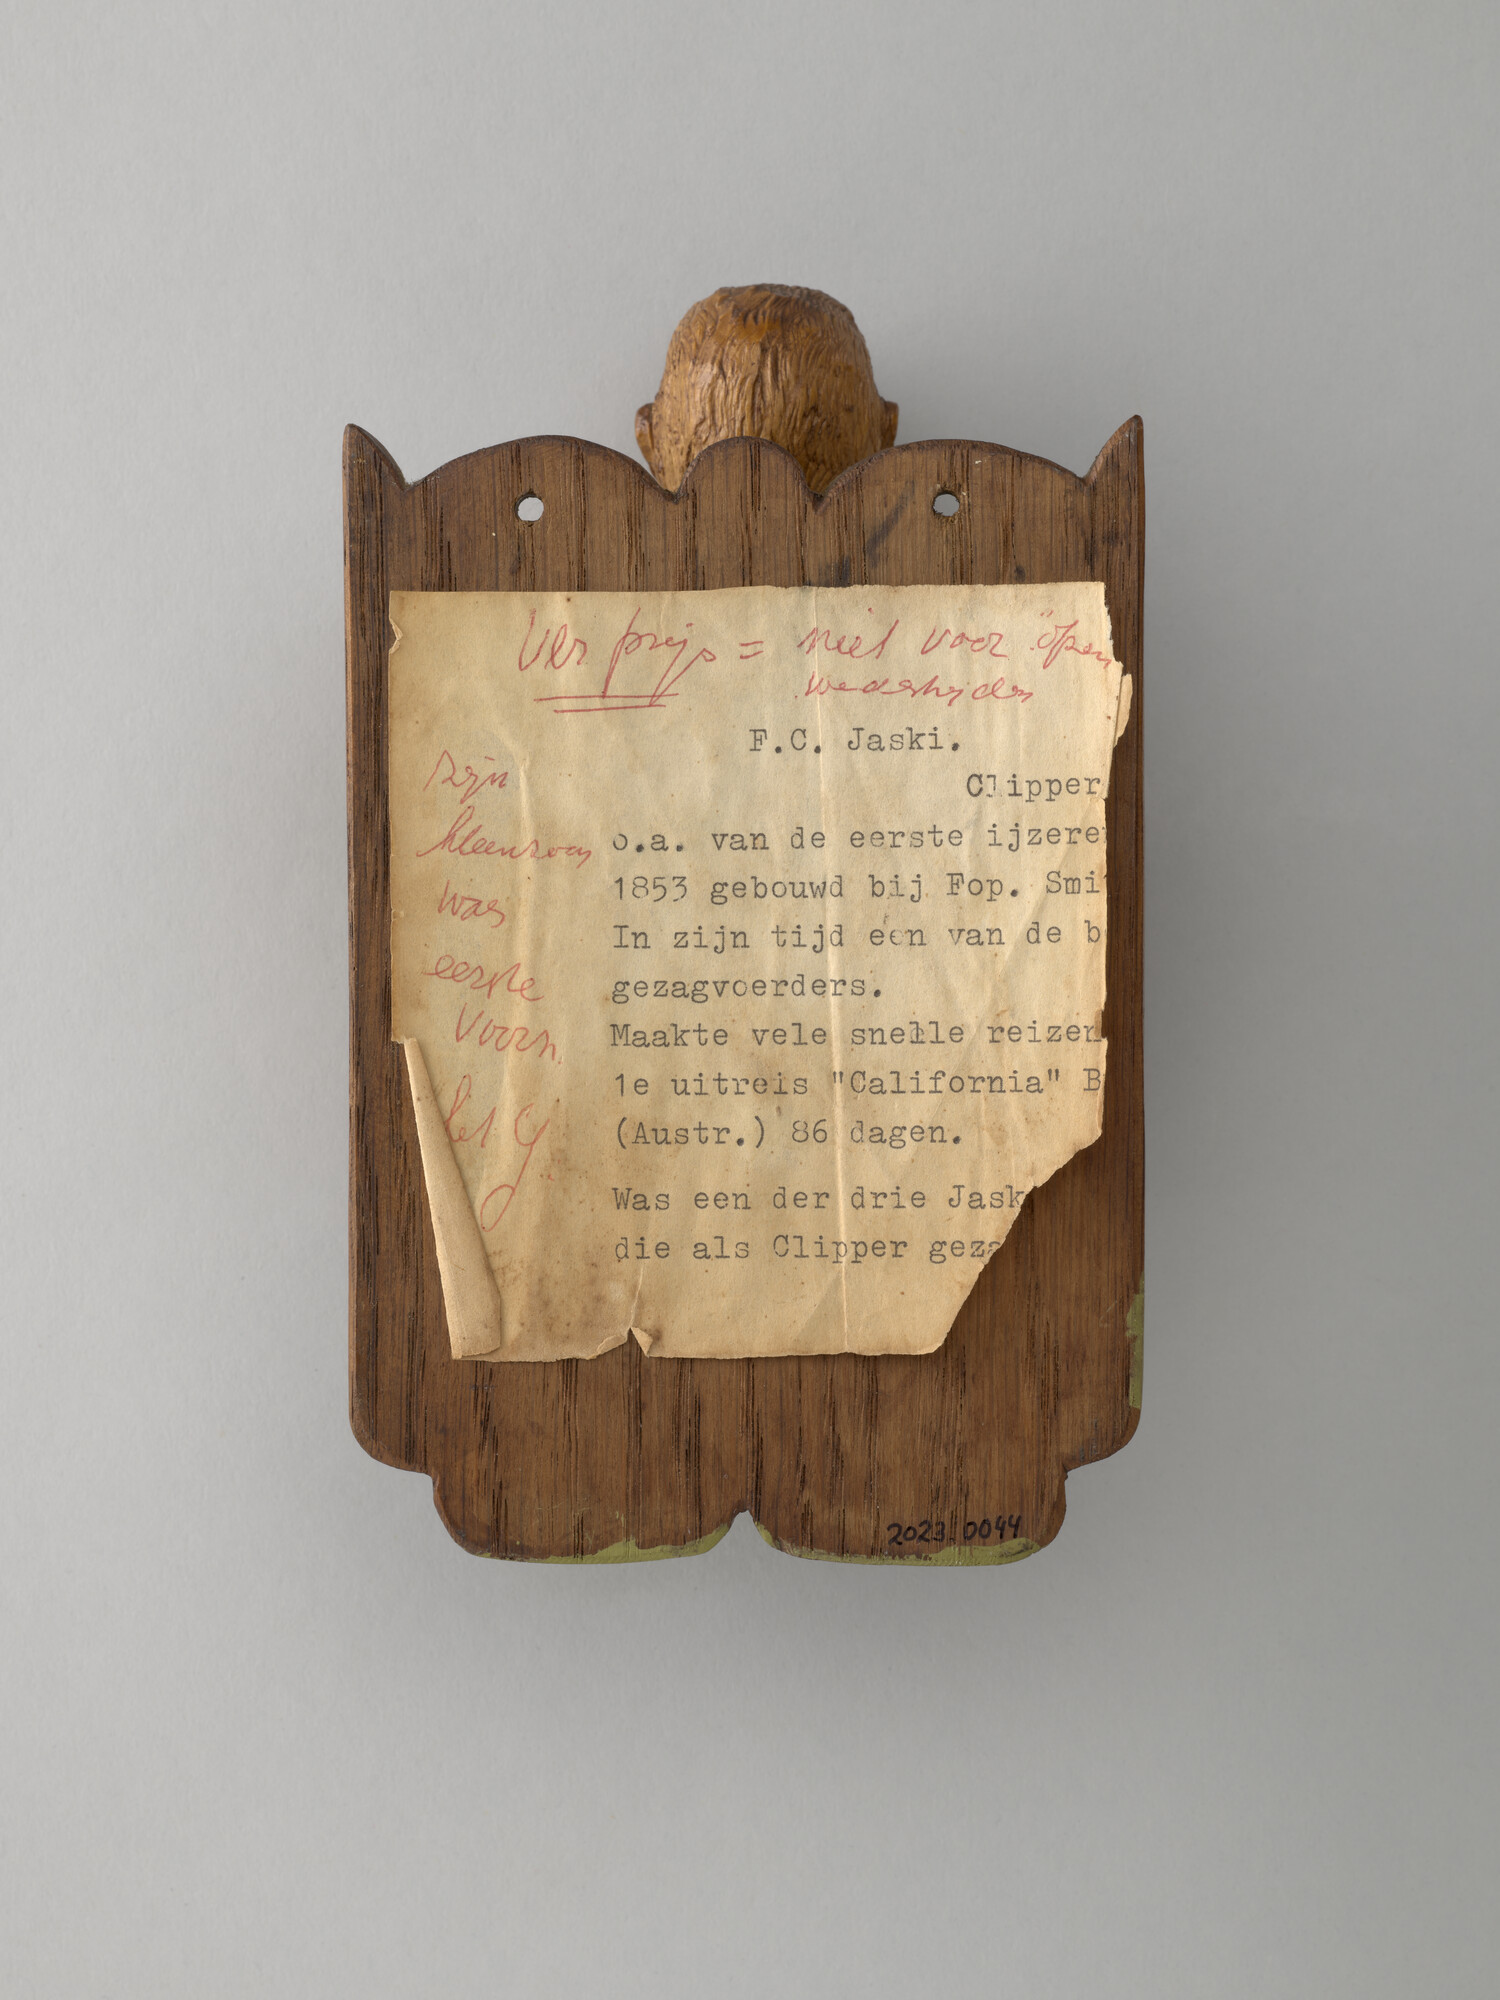 Ver prijs = niet voor "open
wedstrijden
F.C. Jaski.
Clipper
o.a. van de eerste ijzeren
1853 gebouwd bij Fop. Smi
In zijn tijd een van de b
gezagvoerders.
Maakte vele snelle reizen
1e uitreis "California" B
(Austr.) 86 dagen.
Was een der drie Jask
die als Clipper geza
zijn
kleinzoon
was
eerste
Voorz.
2023.0044